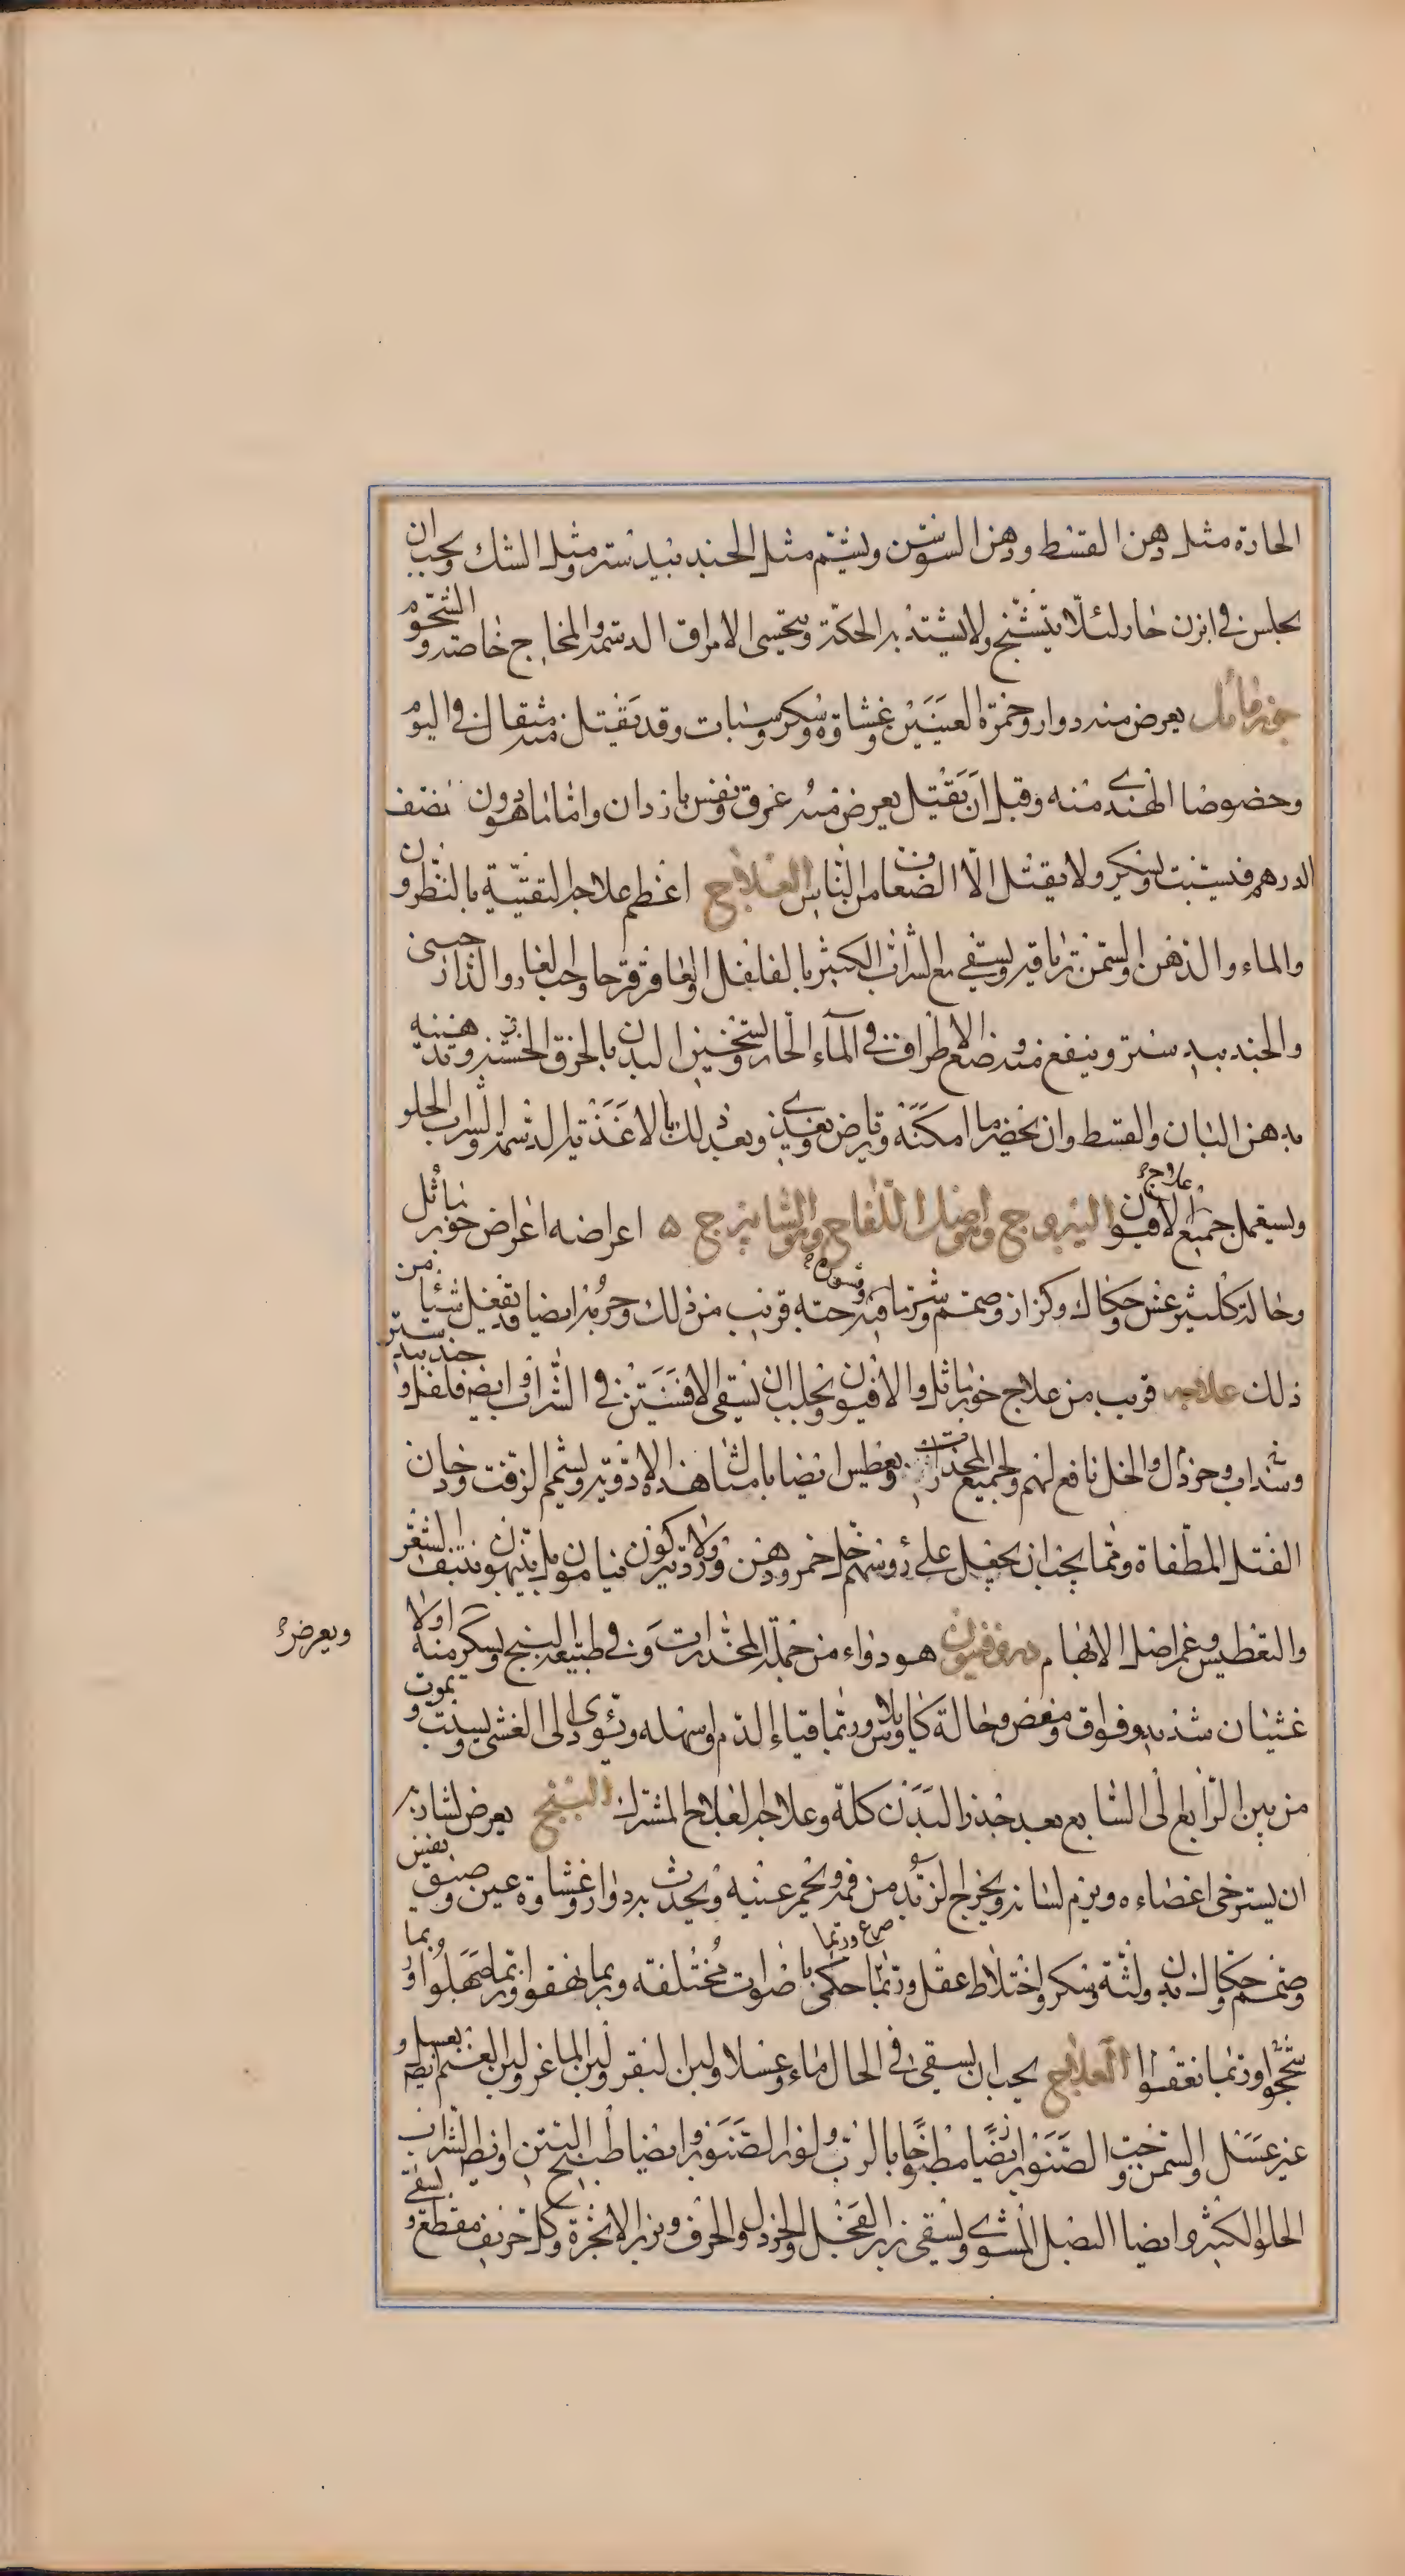 الحارة مثل دهن القسط ودهن السوسن ويشم مثل الجندبيدستر ومثل المسك ويجب ان
يجلس في ابزن حار لئلا يتشنج ولا يشتد به الحكة ويتحسى الامراق الدسمة والمخاخ خاصة والشحوم
جوز ماثل يعرض منه دوار وحمرة العينين وغشاوة وسكر وسبات وقد يقتل منه مثقال في اليوم
وخصوصا الهندى منه وقبل ان يقتل يعرض منه عرق ونفس بارذان واما ما هو دون نصف
الدرهم فيسبت ويسكر ولا يقتل الا الضعاف من الناس العلاج اعظم علاجه التقيئة بالنطرون
والماء والدهن والسمن ترياقه ويسقى مع الشراب الكثير بالفلفل والعاقرقرحا وحب الغار والدارصينى
والجندبيدستر وينفع منه وضع الاطراف في الماء الحار وتسخين البدن بالخرق الخشنة وتدهينه
بدهن البان والقسط وان يحضر ما امكنه ويراض ويغذى وبعد ذلك بالاغذية الدسمة والشراب الحلو
ويستعمل جميع علاج الافيون اليبروج واصول اللفاح والشابيزج اعراضه اعراض جوز ماثل
وحالة كليثرغس وحكاك وكزاز وصمم وشرب ما فيه وقشوره حبه قريب من ذلك وجرمه ايضا قد يفعل شيئا من
ذلك علاجه قريب من علاج جوز ماثل والافيون ويجب ان يسقى الافسنتين في الشراب وايضا فلفل وجندبيدستر
وسذاب وخردل والخل نافع لهم ولجميع المخدرات ويعطس ايضا بامثال هذه الادوية ويشمم الزفت ودخان
الفتل المطفاة ومما يجب ان يجعل على رؤسهم خل خمر ودهن ورد ولا يتركون ينامون بل ينبهون بنتف الشعر
والتعطيس وغمز اصل الابهام دورقنيون هو دواء من جملة المخدرات وفي طبيعة البنج ويسكر منه اولا
ويعرض
غثيان شديد وفواق ومغص وحالة كايلاوس وربما قياء الدم او اسهله ويؤدى الى الغشى ويسبت ويموت
من بين الرابع الى السابع بعد خدر البدن كله وعلاجه العلاج المشترك البنج يعرض لشاربه
ان يسترخى اعضاءه ويرم لسانه ويخرج الزبد من فمه ويحمر عينيه ويحدث به دوار وغشاوة عين وضيق نفس
وصمم وحكاك بدن ولثة وسكر واختلاط عقل وصرع وربما حكى باصوات مختلفة وربما نهقوا وربما صهلوا وربما
شحجوا وربما نعقوا العلاج يجب ان يسقى في الحال ماء وعسلا ولبن البقر ولبن الماعز ولبن الغنم ايضا بعسل و
غير عسل والسمن وحب الصنوبر ايضا مطبوخا بالرب ولوز الصنوبر وايضا طبيخ التين وايضا الشراب
الحلو الكثير وايضا البصل المشوى ويسقى بزر الفجل والخردل والحرف وبزر الانجرة وكل حريف مقطع ويسقى